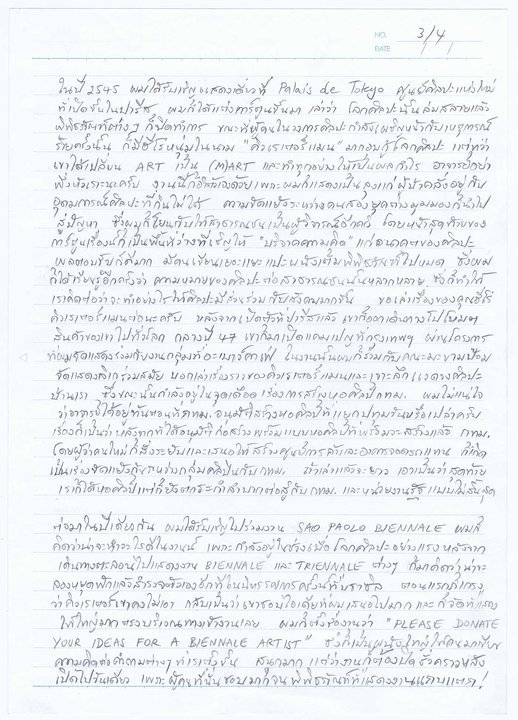 NO. 3/4
DATE
ในปี 2545 ผมได้รับเชิญแสดงเดี่ยวที่ Palais de Tokyo ศูนย์ศิลปะแห่งใหม่
ที่เปิดขึ้นในปารีส ผมก็ได้แต่งการ์ตูนขึ้นมา เล่าว่า โลกศิลปะนั้นล่มสลายแล้ว
พิพิธภัณฑ์ต่างๆ ก็ปิดทำการ ขณะที่ผู้คนในวงการศิลปะกำลังเผชิญหน้ากับเหตุการณ์
ร้ายครั้งนั้น ก็มีฮีโร่หนุ่มในนาม "คิวเรเตอร์แมน" มากอบกู้โลกศิลปะ แต่ทว่า
เขาได้เปลี่ยน ART เป็น (M)ART และทำทุกอย่างให้เป็นผลกำไร อาจารย์อย่า
พึ่งหัวเราะนะครับ
อุดมการณ์ศิลปะที่กินไม่ได้ ความขัดแย้งระหว่างคนสองยุคต่างมุมมองก็นำไป
สู่ปัญหา ซึ่งผมก็โยนกลับให้สาธารณชนเป็นผู้วิจารณ์อีกครั้ง โดยหน้าสุดท้ายของ
การ์ตูนเรื่องนี้ก็เป็นพื้นที่ว่างที่เชิญให้ "บริจาคความคิด" แก่อนาคตของศิลปะ
ผลตอบรับก็ดีมาก มีคนเขียนเยอะแยะแปะผนังเต็มพิพิธภัณฑ์ไปหมด ซึ่งผม
ก็ได้เรียนรู้อีกครั้งว่า ความหมายของศิลปะต่อสาธารณชนนั้นหลากหลาย ซึ่งก็ทำให้
เราคิดต่อว่าจะทำอย่างไรให้ศิลปะมีส่วนร่วมกับสังคมมากขึ้น ขอเล่าเรื่องของคุณฮีโร่
คิวเรเตอร์แมนต่อนะครับ หลังจากเปิดตัวที่ปารีสแล้ว เขาก็ออกเดินทางไปโฆษณา
สินค้าของเขาไปทั่วโลก กลางปี 47 เขาก็มาเปิดแคมเปญที่กรุงเทพฯ ผ่านโครงการ
ที่ผมจัดแสดงร่วมกับงานกลุ่มที่อะเบาว์คาเฟ่ ในงานนั้นผมก็ร่วมกับคณะมะขามป้อม
จัดแสดงลิเกร่วมสมัย บอกเล่าเรื่องราวของคิวเรเตอร์แมนและเจาะลึกแวดวงศิลปะ
บ้านเรา ซึ่งขณะนั้นกำลังอยู่ในจุดเดือด เรื่องการสร้างหอศิลป์กทม. ผมไม่แน่ใจ
เรื่องก็เป็นว่า หลังจากที่ได้อนุมัติก่อสร้างพร้อมแบบหอศิลป์ที่พร้อมจะสร้างแล้ว กทม.
โดยผู้ว่าคนใหม่ก็สั่งระงับและเสนอให้สร้างศูนย์การค้าและอาคารจอดรถแทน ก็เกิด
เป็นเรื่องขัดแย้งกันระหว่างกลุ่มศิลปินกับกทม. ถ้าเล่าแล้วจะยาว เอาเป็นว่าสุดท้าย
เราก็ได้หอศิลป์แต่ก็ยังตรากตรำลำบากต่อสู้กับ กทม. และหน่วยงานรัฐแบบไม่สิ้นสุด
ต่อมาในปีเดียวกัน ผมได้รับเชิญไปร่วมงาน SAO PAOLO BIENNALE ผมก็
คิดว่าน่าจะทำอะไรดีในงานนี้ เพราะกำลังอยู่ในช่วงเบื่อโลกศิลปะอย่างแรง หลังจาก
เดินทางตะลอนไปแสดงงาน BIENNALE และ TRIENNALE ต่างๆ ก็มาคิดว่าน่าจะ
ลองหยุดพักแล้วสำรวจตัวเองอีกทีในนิทรรศการครั้งนี้ที่บราซิล ตอนแรกก็เกรง
ว่าคิวเรเตอร์เขาคงไม่เอา กลับเป็นว่าเขาชอบไอเดียที่ผมเสนอไปมาก และก็จัดที่แสดง
ให้ใหญ่มากตรงบริเวณทางเข้างานเลย ผมก็ตั้งชื่องานว่า "PLEASE DONATE
YOUR IDEAS FOR A BIENNALE ARTIST" ซึ่งก็เป็นผนังใหญ่ให้คนมาเขียน
ความคิดต่อคำถามต่างๆ ที่เราตั้งขึ้น สนุกมาก แต่ว่างานก็ต้องปิดชั่วคราวหลัง
เปิดไปวันเดียว เพราะผู้คนที่นั่นชอบมากจนพิพิธภัณฑ์ที่แสดงงานแทบแตก!